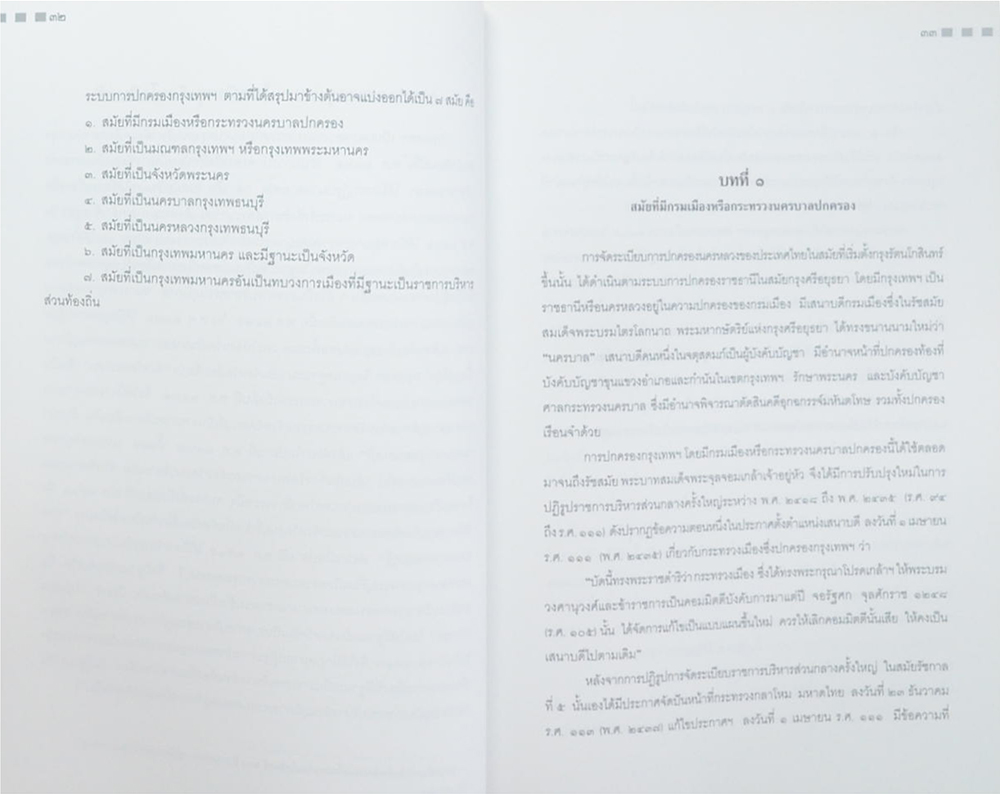 ๓๒
ระบบการปกครองกรุงเทพฯ ตามที่ได้สรุปมาข้างต้นอาจแบ่งออกได้เป็น ๗ สมัย คือ
๑. สมัยที่มีกรมเมืองหรือกระทรวงนครบาลปกครอง
๒. สมัยที่เป็นมณฑลกรุงเทพฯ หรือกรุงเทพพระมหานคร
๓. สมัยที่เป็นจังหวัดพระนคร
๔. สมัยที่เป็นนครบาลกรุงเทพธนบุรี
๕. สมัยที่เป็นนครหลวงกรุงเทพธนบุรี
๖. สมัยที่เป็นกรุงเทพมหานคร และมีฐานะเป็นจังหวัด
๗. สมัยที่เป็นกรุงเทพมหานครอันเป็นทบวงการเมืองที่มีฐานะเป็นราชการบริหาร
ส่วนท้องถิ่น
๓๓
บทที่ ๑
สมัยที่มีกรมเมืองหรือกระทรวงนครบาลปกครอง
การจัดระเบียบการปกครองนครหลวงของประเทศไทยในสมัยที่เริ่มตั้งกรุงรัตนโกสินทร์
ขึ้นนั้น ได้ดำเนินตามระบบการปกครองราชธานีในสมัยกรุงศรีอยุธยา โดยมีกรุงเทพฯ เป็น
ราชธานีหรือนครหลวงอยู่ในความปกครองของกรมเมือง มีเสนาบดีกรมเมืองซึ่งในรัชสมัย
สมเด็จพระบรมไตรโลกนาถ พระมหากษัตริย์แห่งกรุงศรีอยุธยา ได้ทรงขนานนามใหม่ว่า
"นครบาล" เสนาบดีคนหนึ่งในจตุสดมภ์เป็นผู้บังคับบัญชา มีอำนาจหน้าที่ปกครองท้องที่
บังคับบัญชาขุนแขวงอำเภอและกำนันในเขตกรุงเทพฯ รักษาพระนคร และบังคับบัญชา
ศาลกระทรวงนครบาล ซึ่งมีอำนาจพิจารณาตัดสินคดีอุกฉกรรจ์มหันตโทษ รวมทั้งปกครอง
เรือนจำด้วย
การปกครองกรุงเทพฯ โดยมีกรมเมืองหรือกระทรวงนครบาลปกครองนี้ได้ใช้ตลอด
มาจนถึงรัชสมัย พระบาทสมเด็จพระจุลจอมเกล้าเจ้าอยู่หัว จึงได้มีการปรับปรุงใหม่ในการ
ปฏิรูปราชการบริหารส่วนกลางครั้งใหญ่ระหว่าง พ.ศ. ๒๔๑๘ ถึง พ.ศ. ๒๔๓๕ (ร.ศ. ๙๔
ถึง ร.ศ. ๑๑๑) ดังปรากฏข้อความตอนหนึ่งในประกาศตั้งตำแหน่งเสนาบดี ลงวันที่ ๑ เมษายน
ร.ศ. ๑๑๑ (พ.ศ. ๒๔๓๕) เกี่ยวกับกระทรวงเมืองซึ่งปกครองกรุงเทพฯ ว่า
"บัดนี้ทรงพระราชดำริว่า กระทรวงเมือง ซึ่งได้ทรงพระกรุณาโปรดเกล้าฯ ให้พระบรม
วงศานุวงศ์และข้าราชการเป็นคอมมิตตีบังคับการมาแต่ปี จอรัฐศก จุลศักราช ๑๒๔๘
(ร.ศ. ๑๐๕) นั้น ได้จัดการแก้ไขเป็นแบบแผนขึ้นใหม่ ควรให้เลิกคอมมิตตีนั้นเสีย ให้คงเป็น
เสนาบดีไปตามเดิม"
หลังจากการปฏิรูปการจัดระเบียบราชการบริหารส่วนกลางครั้งใหญ่ ในสมัยรัชกาล
ที่ ๕ นั้นเองได้มีประกาศจัดปันหน้าที่กระทรวงกลาโหม มหาดไทย ลงวันที่ ๒๓ ธันวาคม
ร.ศ. ๑๑๓ (พ.ศ. ๒๔๓๗) แก้ไขประกาศฯ ลงวันที่ ๑ เมษายน ร.ศ. ๑๑๑ มีข้อความที่